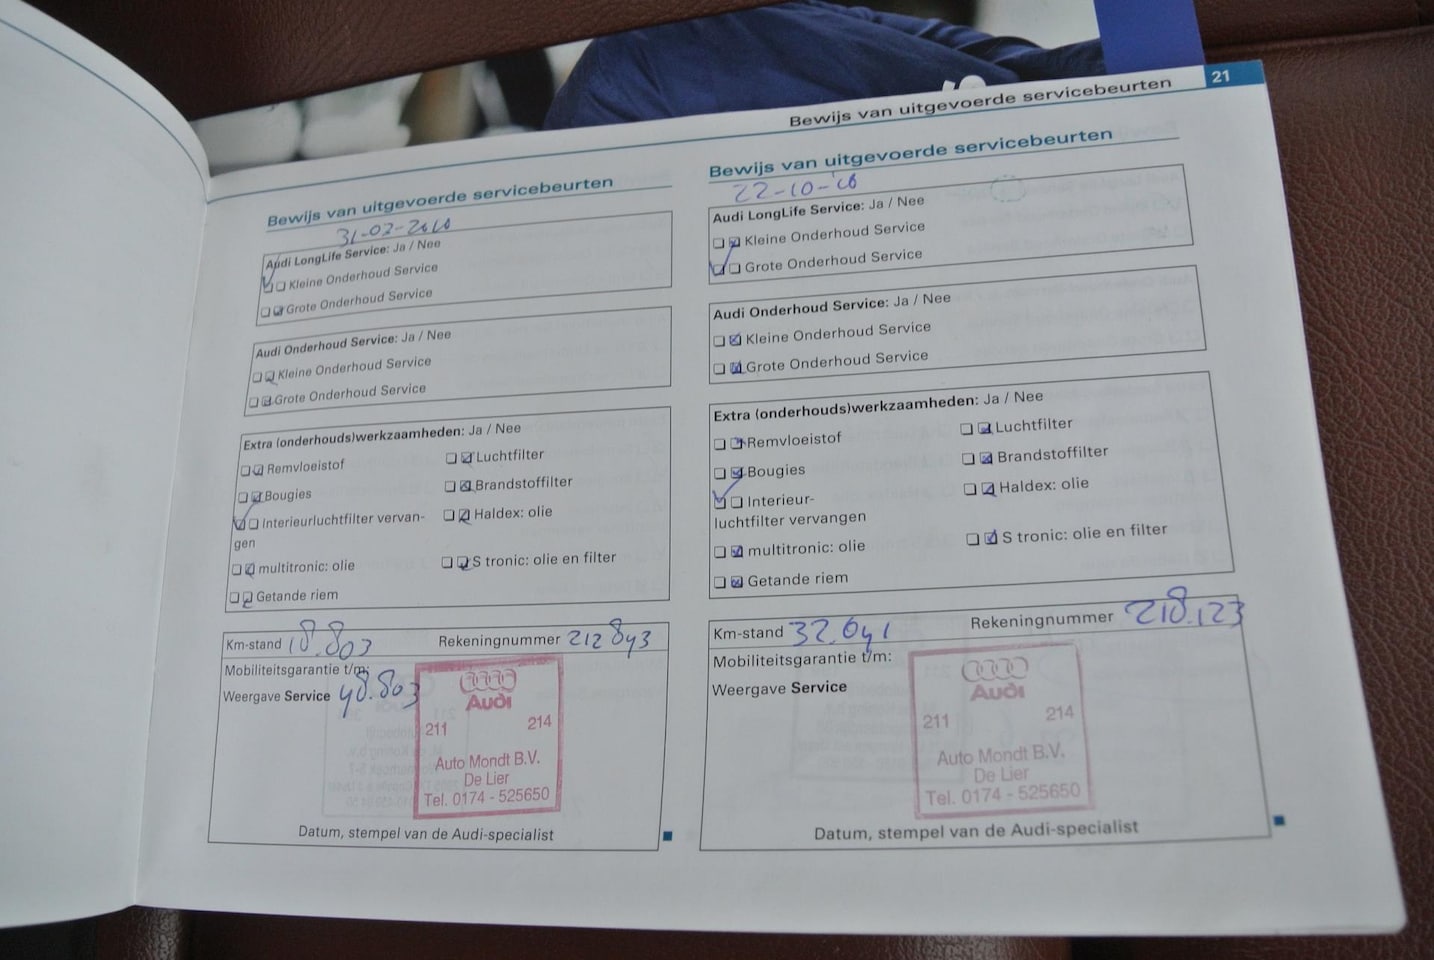 21
Bewijs van uitgevoerde servicebeurten
Bewijs van uitgevoerde servicebeurten
Audi LongLife Service: Ja / Nee
Kleine Onderhoud Service
Grote Onderhoud Service
Audi Onderhoud Service: Ja / Nee
Kleine Onderhoud Service
Grote Onderhoud Service
Extra (onderhouds)werkzaamheden: Ja / Nee
Remvloeistof
Luchtfilter
Bougies
Brandstoffilter
Interieurluchtfilter vervan-
gen
Haldex: olie
multitronic: olie
S tronic: olie en filter
Getande riem
Km-stand 18.803
Rekeningnummer 212843
Mobiliteitsgarantie t/m:
Weergave Service 48.803
Audi
211 214
Auto Mondt B.V.
De Lier
Tel. 0174 - 525650
Datum, stempel van de Audi-specialist
Bewijs van uitgevoerde servicebeurten
Audi LongLife Service: Ja / Nee
Kleine Onderhoud Service
Grote Onderhoud Service
Audi Onderhoud Service: Ja / Nee
Kleine Onderhoud Service
Grote Onderhoud Service
Extra (onderhouds)werkzaamheden: Ja / Nee
Remvloeistof
Luchtfilter
Bougies
Brandstoffilter
Interieur-
luchtfilter vervangen
Haldex: olie
multitronic: olie
S tronic: olie en filter
Getande riem
Km-stand 32.641
Rekeningnummer 218.123
Mobiliteitsgarantie t/m:
Weergave Service
Audi
211 214
Auto Mondt B.V.
De Lier
Tel. 0174 - 525650
Datum, stempel van de Audi-specialist